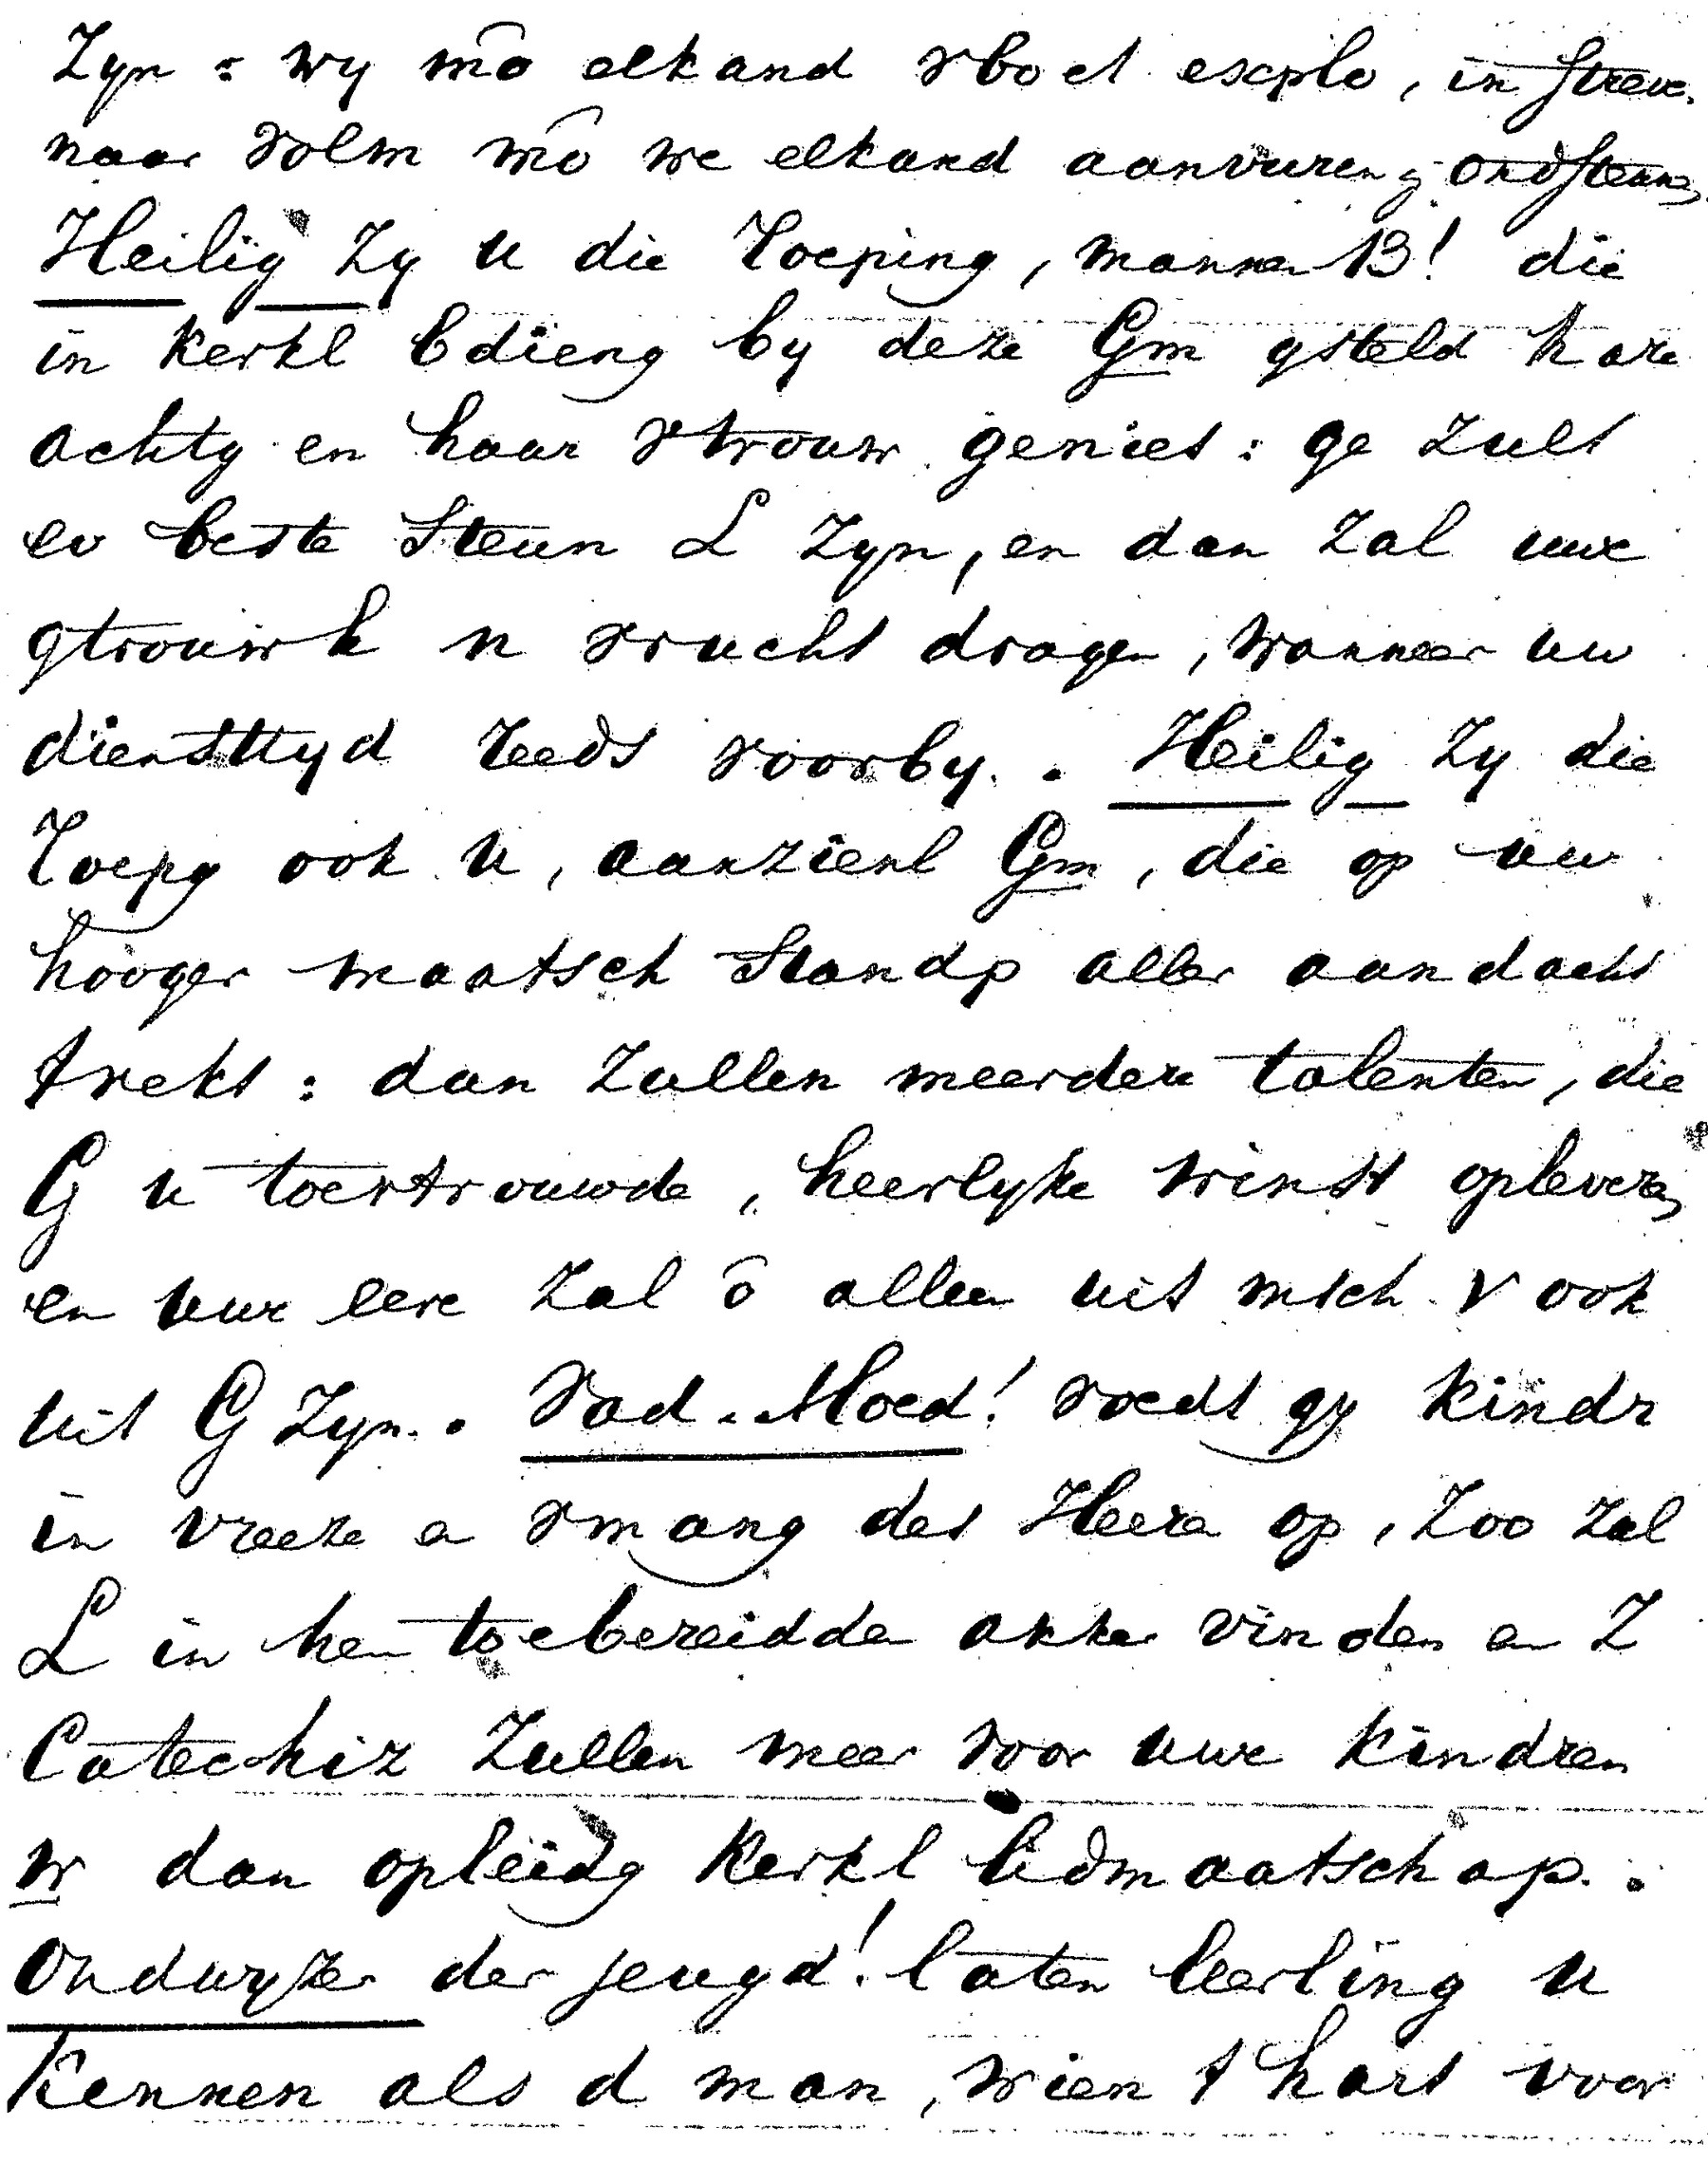 Zyn : wy mô elkand vb et exple, in streve
naar volm mô we elkand aanvuren, ondsteune,
Heilig Zy u die roeping, mannen B! die
in Kerkl bdieng by deze Gm gsteld hare
achtg en haar vtrouw geniet : ge Zult
ev beste Steun L Zyn, en dan Zal uwe
gtrouwh n vrucht dragen, wanneer uw
diensttyd reeds voorby. . Heilig Zy die
roepg ook u, aanzienl Gm, die op uw
hooger maatsch Standp aller aandacht
trekt : dan Zullen meerdere talenten, die
G u toevertrouwde, heerlyke winst opleveren,
en uwe eere Zal ô alleen uit msch v ook
uit G Zyn. . Vad. Moed! voedt gy Kindr
in vreeze en vmang des Heere op, Zoo Zal
L in hen toebereidden akker vinden en Z
Catechiz Zullen meer voor uwe Kindren
w dan opleidg Kerkl lidmaatschap. .
Ondwyzer der jeugd! laten leerling u
Kennen als d man, wien t hart voor